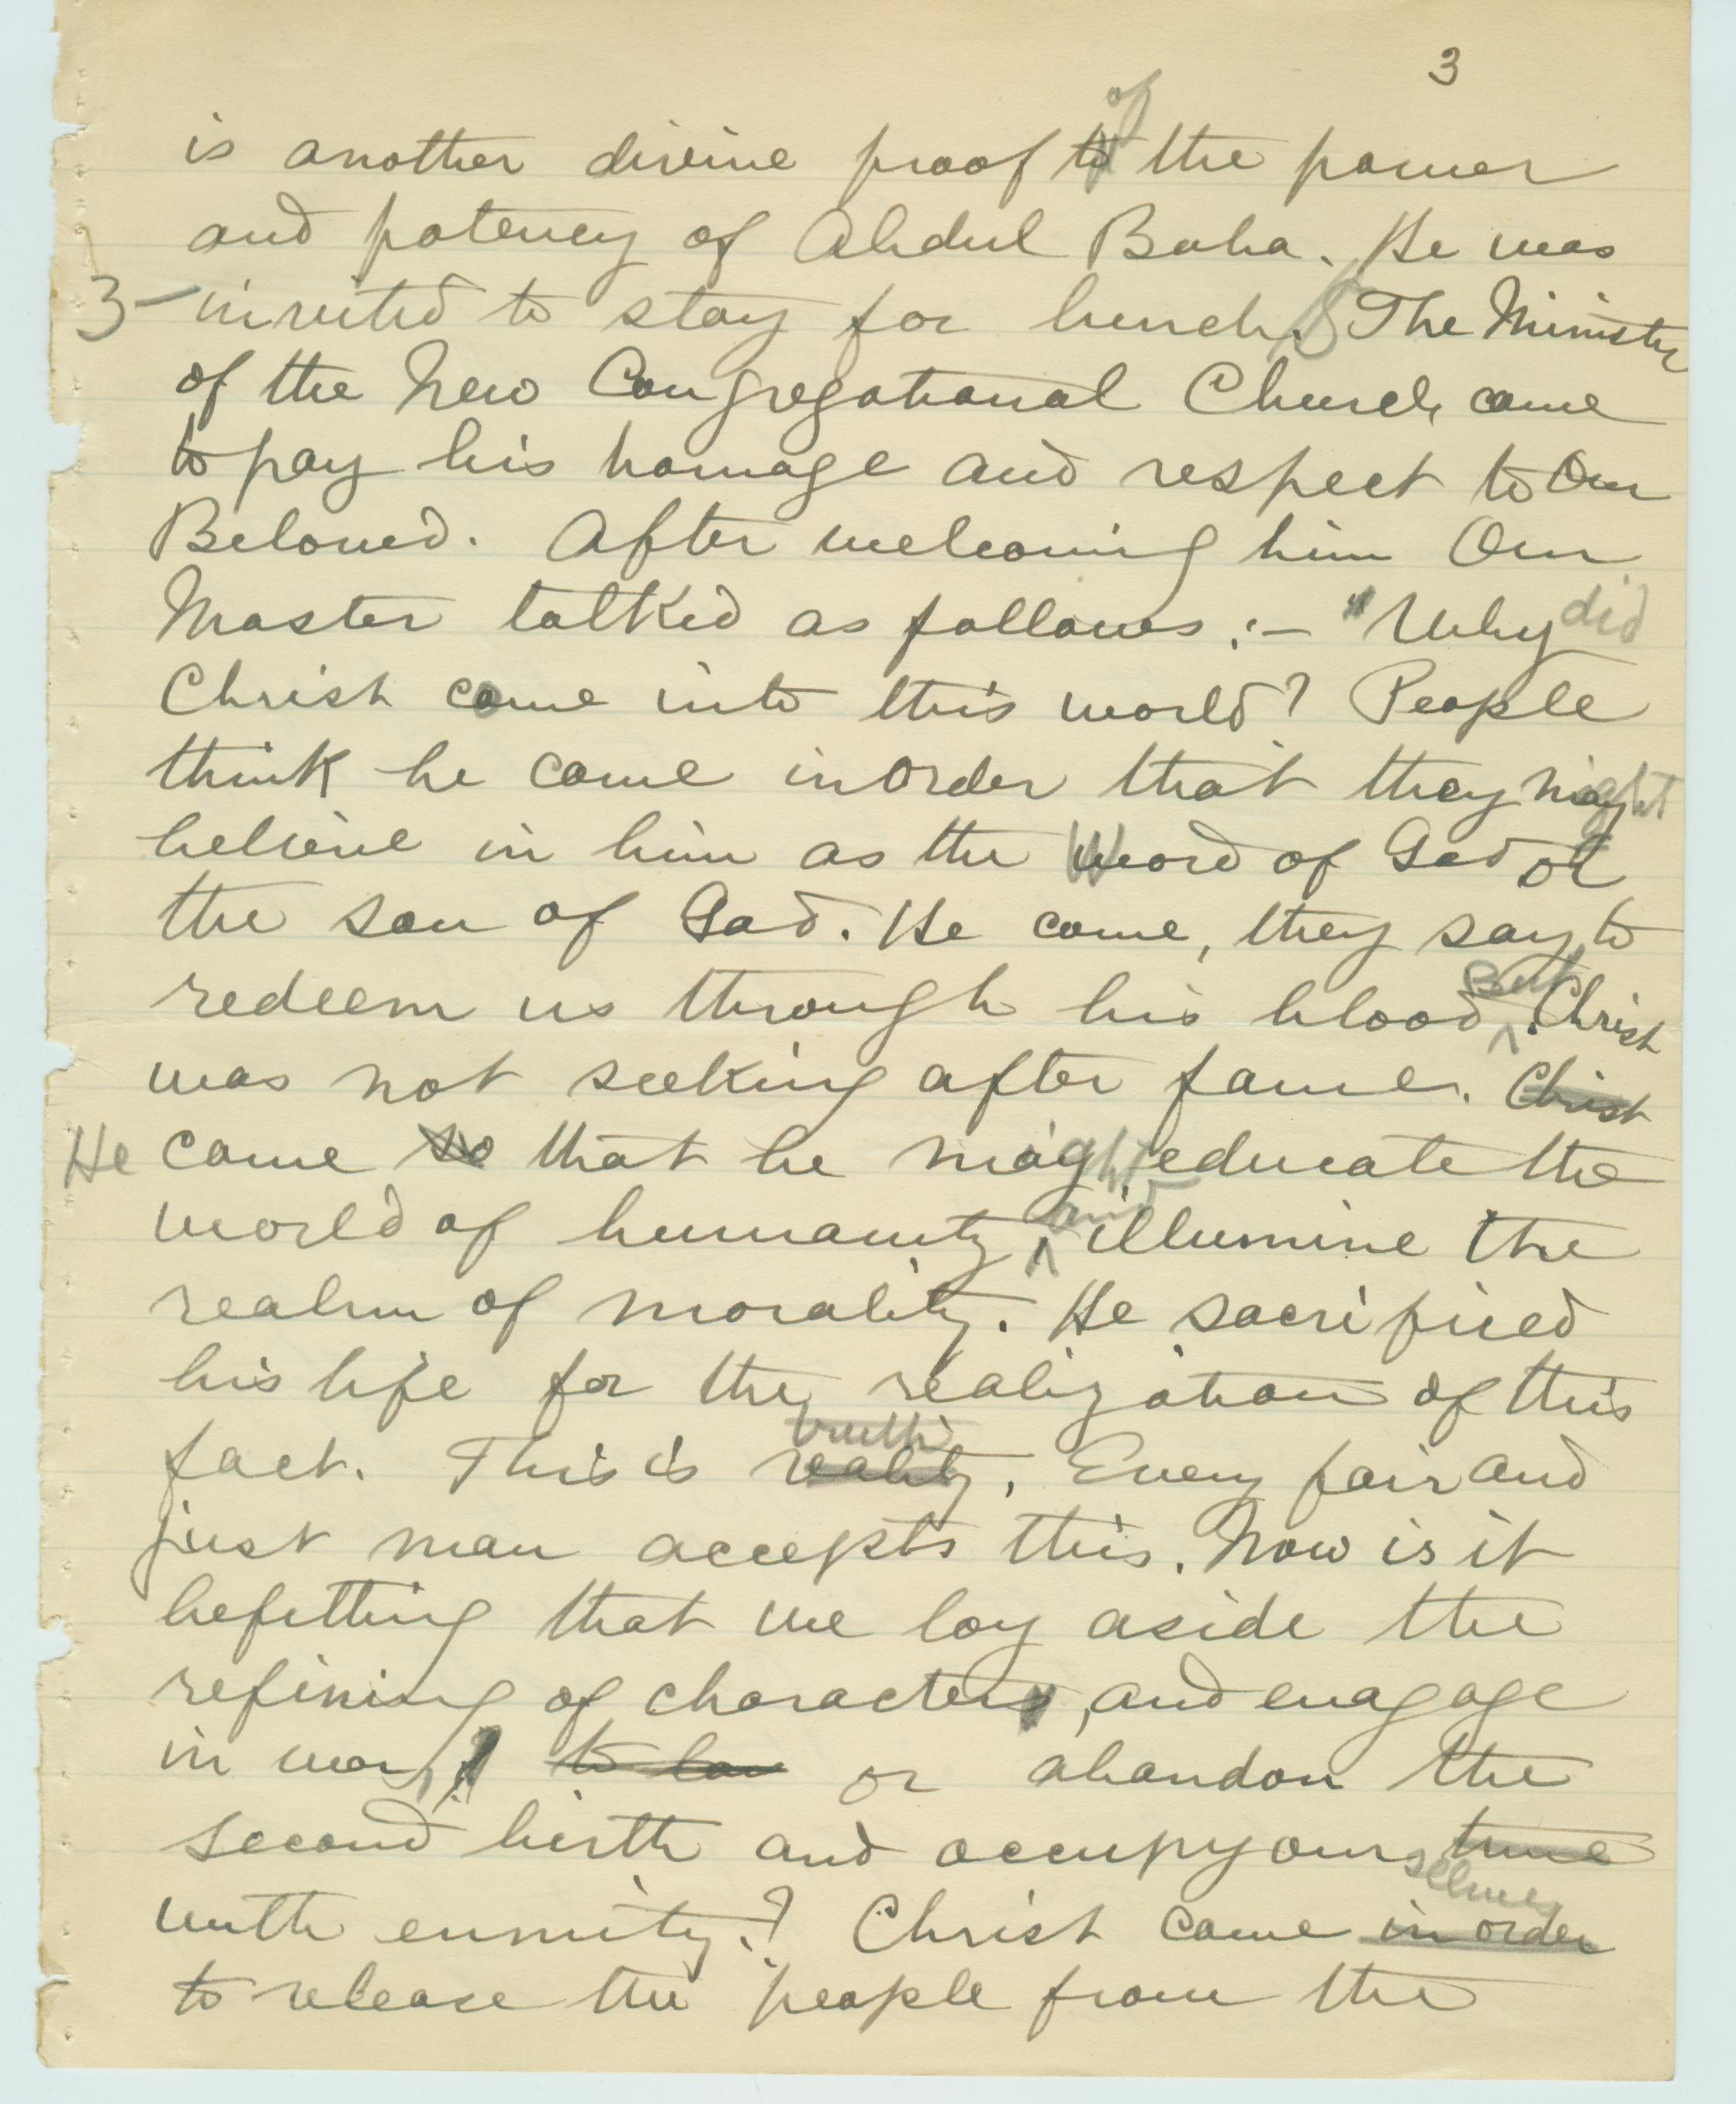 3
is another divine proof of the power
and potency of Abdul Baha. He was
3- invited to stay for lunch. The Minister
of the New Congregational Church came
to pay his homage and respect to Our
Beloved. After welcoming him Our
Master talked as follows:- "Why did
Christ come into this world? People
think he came in order that they might
believe in him as the Word of God or
the son of God. He came, they say, to
redeem us through his blood. But Christ
was not seeking after fame. Christ
He came so that he might educate the
world of humanity, and illumine the
realm of morality. He sacrificed
his life for the realization of this
fact. This is reality truth. Every fair and
just man accepts this. Now is it
befitting that we lay aside the
refining of character, and enagage
in war? to law or abandon the
second birth and occupy our time selves
with enmity? Christ came in order
to release the people from the